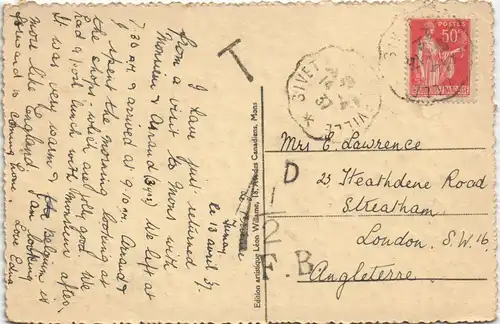 le 13 avril 37.
I have just returned
from a visit to Mons with
Monsieur & Armand (3ième) We left at
7.30 am & arrived at 9.10 am. Armand &
I spent the morning looking at
the shops, which are jolly good. We
had a good lunch with Monsieur after.
It was very warm & Belgium is
more like England. I am looking
forward to coming home. Love Edna
Edition artistique Léon Willame, 18, Rue des Canadiens, Mons
T
GIVET
14
37
50c
Mrs E. Lawrence
23, Heathdene Road
Streatham
London. S.W.16.
Angleterre.
D
12
G.B